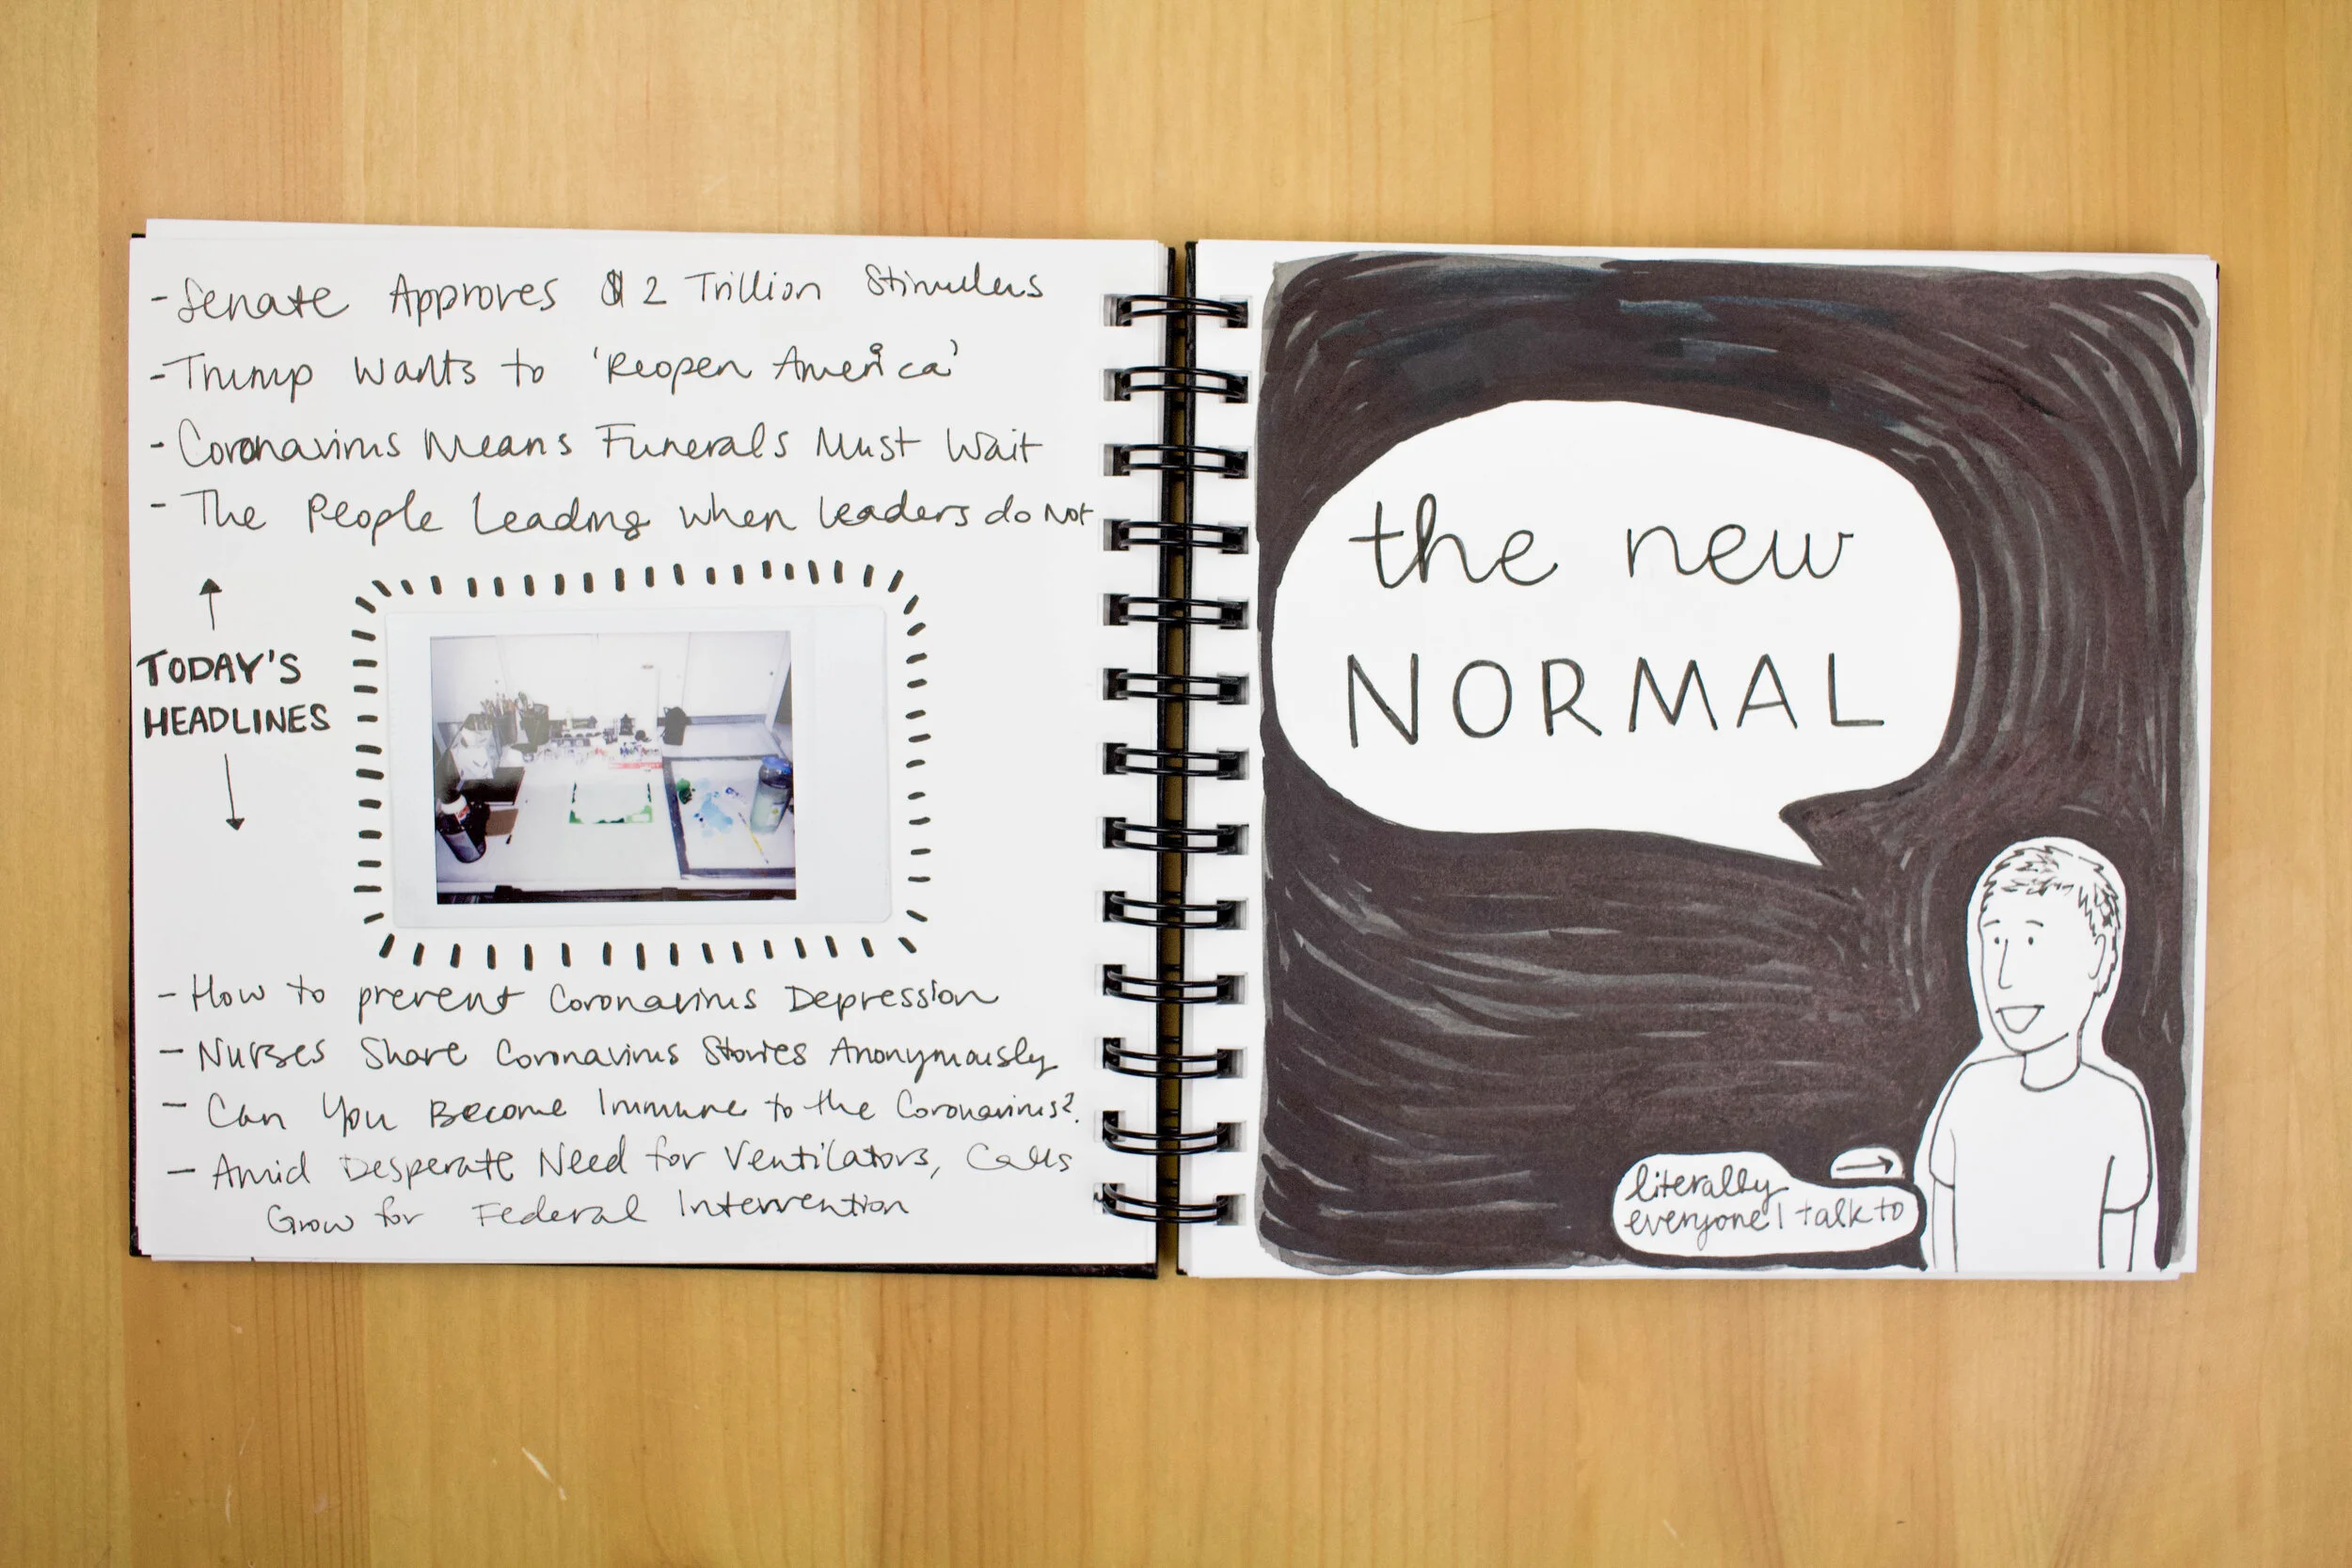 - Senate Approves $2 Trillion Stimulus
- Trump Wants to 'Reopen America'
- Coronavirus Means Funerals Must Wait
- The People Leading when leaders do not
TODAY'S
HEADLINES
- How to prevent Coronavirus Depression
- Nurses Share Coronavirus Stories Anonymously
- Can You Become Immune to the Coronavirus?
- Amid Desperate Need for Ventilators, Calls
Grow for Federal Intervention
the new
NORMAL
literally
everyone I talk to